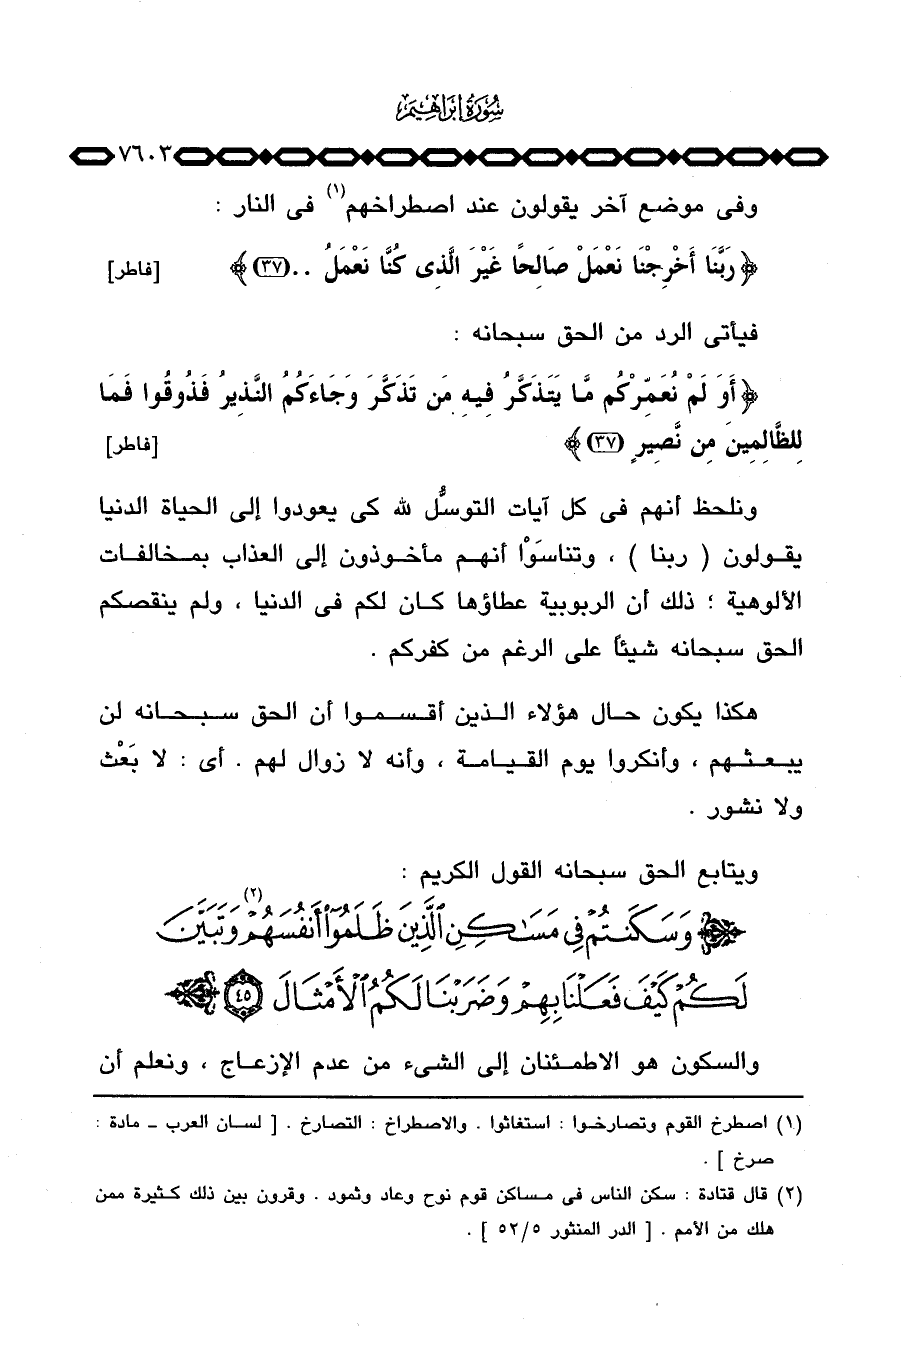 سُورَةُ إِبْرَاهِيمَ
٧٦٠٣
وفى موضع آخر يقولون عند اصطراخهم(١) فى النار :
﴿ رَبَّنَا أَخْرِجْنَا نَعْمَلْ صَالِحًا غَيْرَ الَّذِى كُنَّا نَعْمَلُ ..(٣٧)﴾ [فاطر]
فيأتى الرد من الحق سبحانه :
﴿ أَوَ لَمْ نُعَمِّرْكُم مَّا يَتَذَكَّرُ فِيهِ مَن تَذَكَّرَ وَجَاءَكُمُ النَّذِيرُ فَذُوقُوا فَمَا
لِلظَّالِمِينَ مِن نَّصِيرٍ (٣٧)﴾ [فاطر]
ونلحظ أنهم فى كل آيات التوسُّل لله كى يعودوا إلى الحياة الدنيا
يقولون ( ربنا ) ، وتناسَوْا أنهم مأخوذون إلى العذاب بمخالفات
الألوهية ؛ ذلك أن الربوبية عطاؤها كان لكم فى الدنيا ، ولم ينقصكم
الحق سبحانه شيئاً على الرغم من كفركم .
هكذا يكون حال هؤلاء الذين أقسموا أن الحق سبحانه لن
يبعثهم ، وأنكروا يوم القيامة ، وأنه لا زوال لهم . أى : لا بَعْث
ولا نشور .
ويتابع الحق سبحانه القول الكريم :
﴿ وَسَكَنتُمْ فِي مَسَاكِنِ الَّذِينَ ظَلَمُوا أَنفُسَهُمْ(٢) وَتَبَيَّنَ
لَكُمْ كَيْفَ فَعَلْنَا بِهِمْ وَضَرَبْنَا لَكُمُ الْأَمْثَالَ (٤٥) ﴾
والسكون هو الاطمئنان إلى الشىء من عدم الإزعاج ، ونعلم أن
(١) اصطرخ القوم وتصارخوا : استغاثوا . والاصطراخ : التصارخ . [ لسان العرب – مادة :
صرخ ] .
(٢) قال قتادة : سكن الناس فى مساكن قوم نوح وعاد وثمود . وقرون بين ذلك كثيرة ممن
هلك من الأمم . [ الدر المنثور ٥٢/٥ ] .